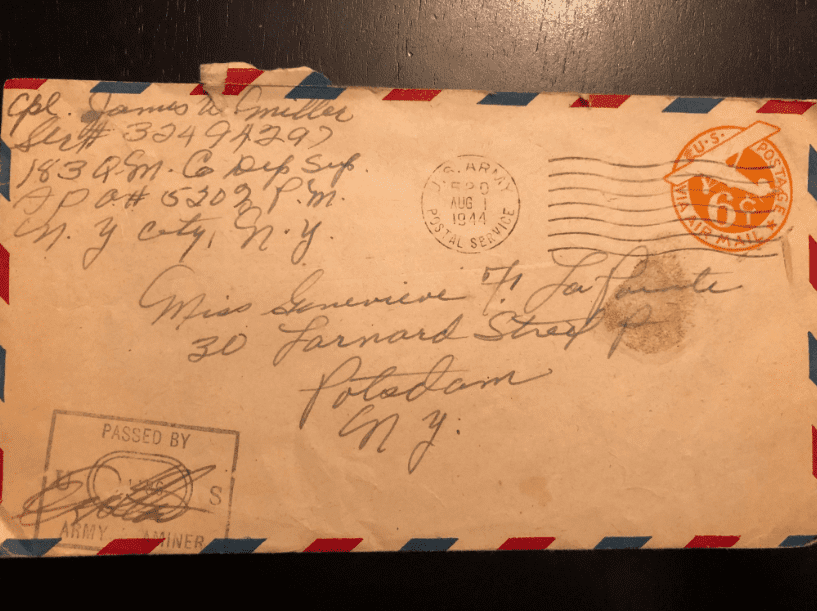 Cpl. James W. Miller
Ser# 32494297
183 Q.M. Co Dep Sup.
A P O # 5202 P.M.
N. Y City, N. Y.
U.S. ARMY
AUG 1
1944
POSTAL SERVICE
U.S. POSTAGE
6¢
VIA AIR MAIL
Miss Genevieve
30 Larnard Street
Potsdam
N. Y.
PASSED BY
U S
ARMY AMINER